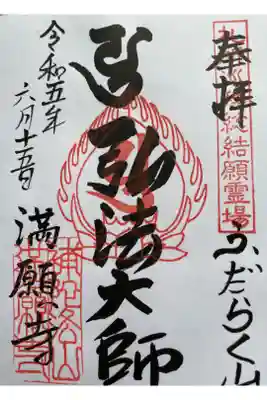 奉拝
結願霊場
ふだらく山
弘法大師
令和五年
六月十五日
満願寺